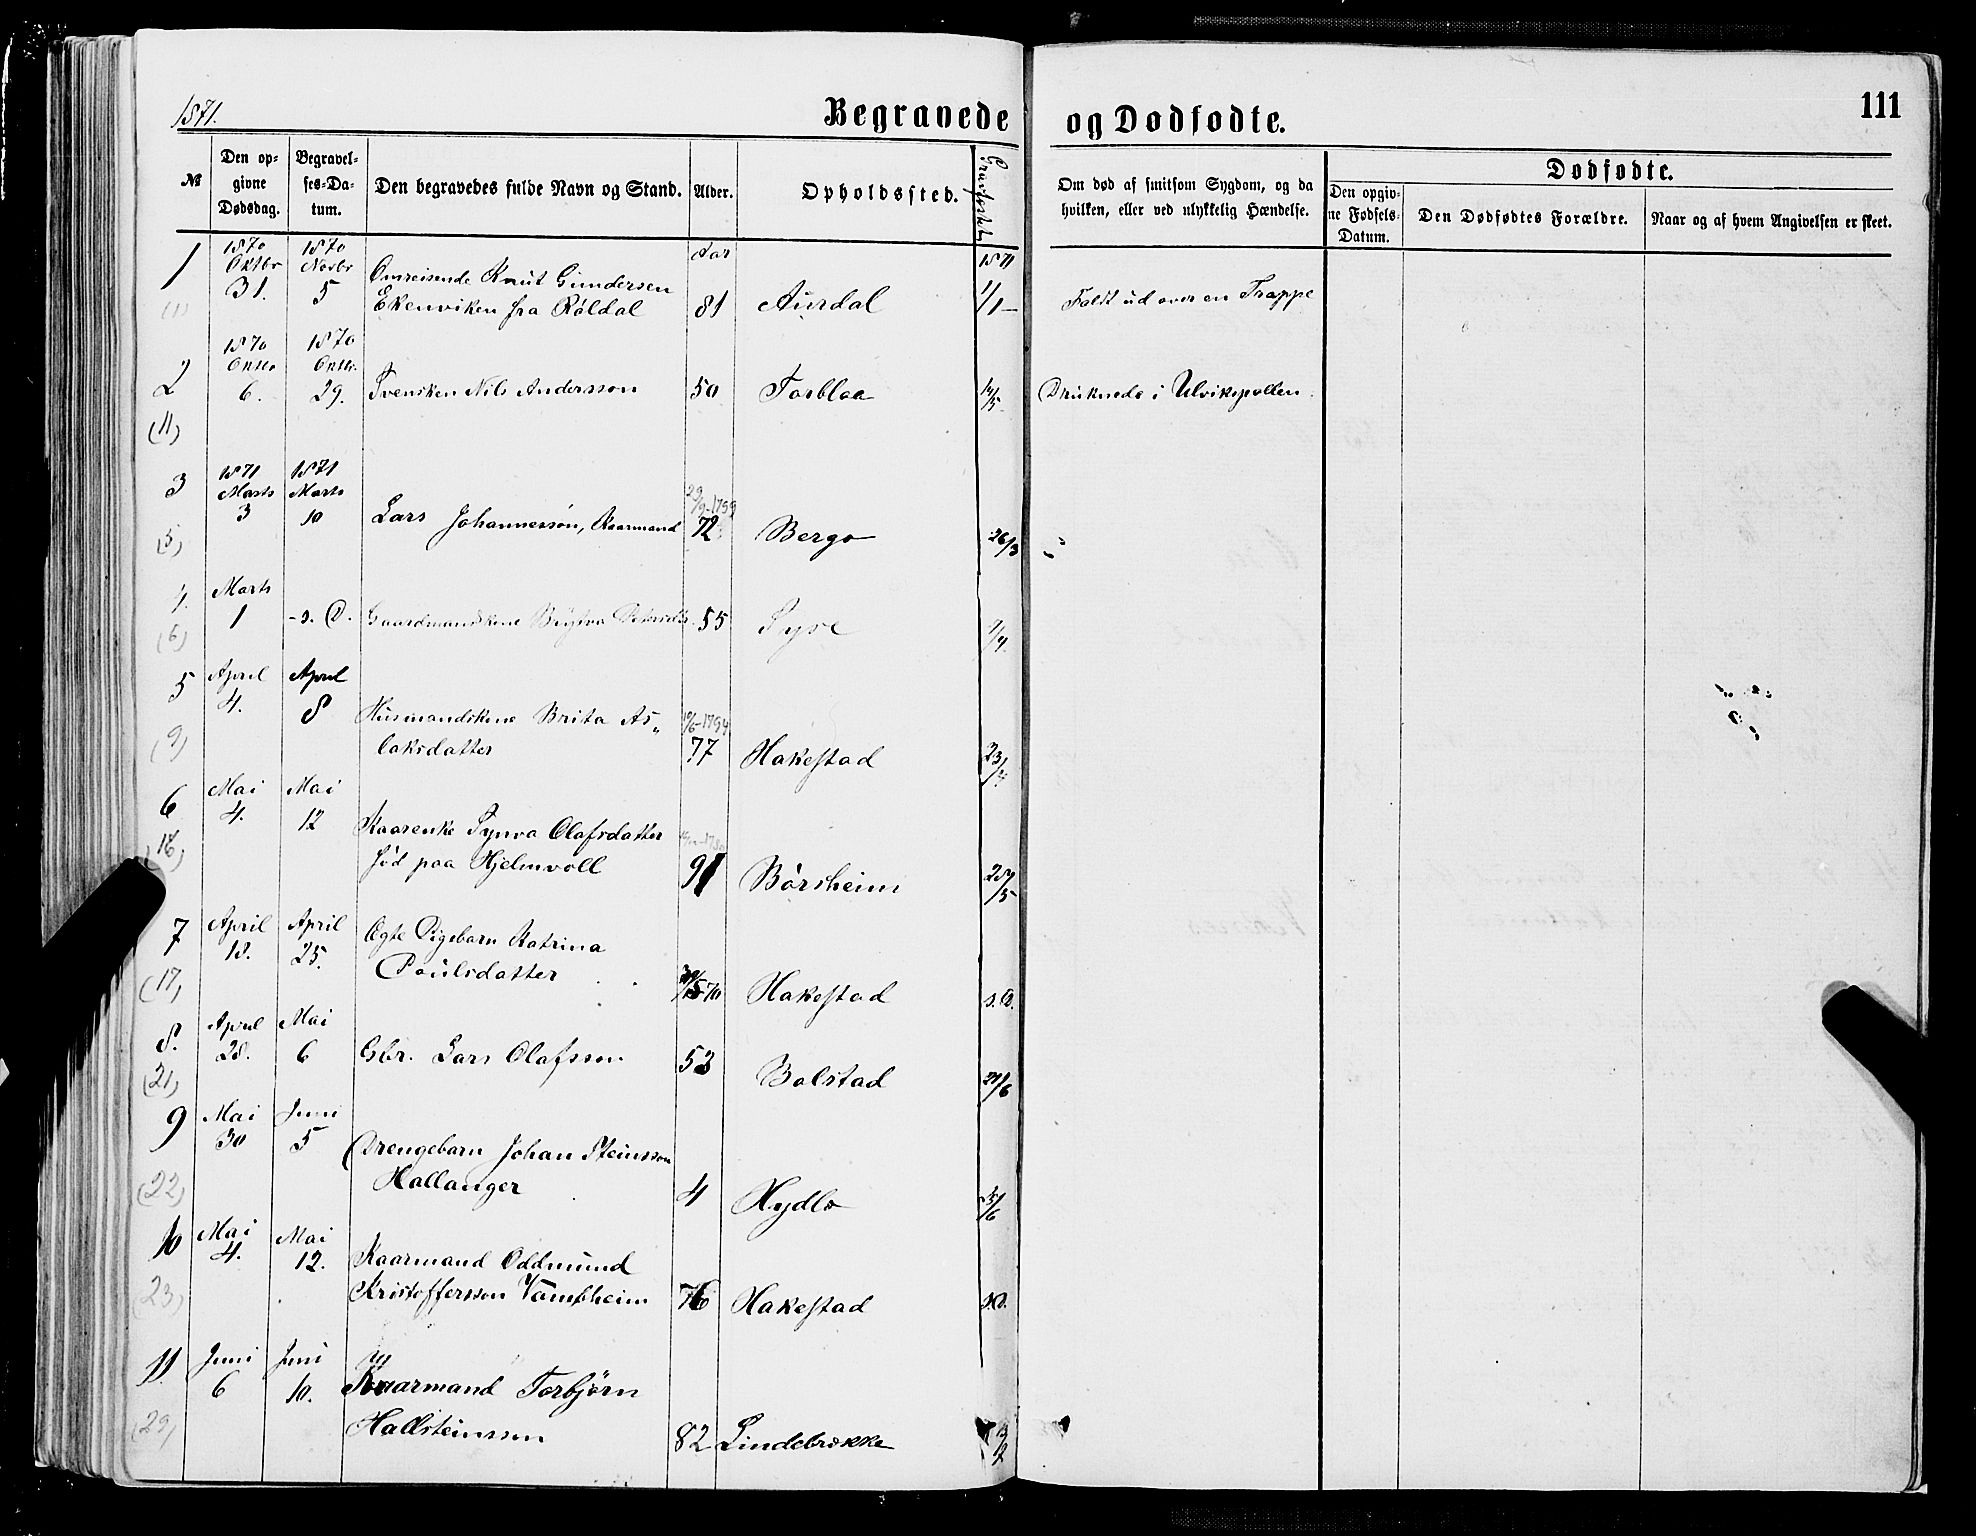 1871.
Begravede og Dødfødte.
111
№
Den op-
givne
Dødsdag.
Begravel-
ses-Da-
tum.
Den begravedes fulde Navn og Stand.
Alder.
Opholdssted.
Om død af smitsom Sygdom, og da
hvilken, eller ved ulykkelig Hændelse.
Dødfødte.
Den opgiv-
ne Fødsels-
Datum.
Den Dødfødtes Forældre.
Naar og af hvem Angivelsen er skeet.
1 1870 Oktbr 31. 1870 Novbr 5 Aar 1871
Omreisende Knut Gundersen
Ekenviken fra Røldal 81 Aurdal 1/1 Faldt ud over en Trappe
(1)
2 1870 6. 1870 29. Svensken Nils Andersson 50 Torblaa 14/5 Druknede i Ulvikspollen.
(11)
3 1871 Marts 3 1871 Marts 10 Lars Johannessøn, Kaarmand 29/9-1799 72 Berge 26/3
(5)
4. Marts 1 - s. D. Gaardmandskone 55 Syse
(6)
5 April 4. April 8 Husmandskone Brita As„
laksdatter 1794 77 Hakestad 23/4
(9)
6 Mai 4. Mai 12 Kaarenke Synva Olafsdatter
fød paa Hjelmvoll 91 Børsheim 28/5
(16)
7 April 18. April 25. Ægte Pigebarn Katrina
Poulsdatter 70 Hakestad s.D.
(17)
8. April 28. Mai 6 Gbr. Lars Olafsson 53 Bolstad 21/6
(21)
9 Mai 30 Juni 5 Drengebarn Johan Steinsson
Hallanger 4 Hydle 25/6
(22)
10 Mai 4. Mai 12. Kaarmand Oddmund
Kristoffersson Vambheim 76 Hakestad s.D.
(23)
11. Juni 6 Juni 10. Kaarmand Torbjørn
Hallsteinsson 82 Lindebrække
(29)